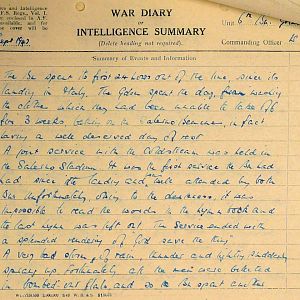 ence and Intelligence
F.S. Regs., Vol. I.
WAR DIARY
or
INTELLIGENCE SUMMARY
(Delete heading not required).
Unit 6th Bn.
Commanding Officer
Sept 1943
Summary of Events and Information
The Bn spent its first 24 hours out of the line, since its
landing in Italy. The Bn spent the day, from
the clothes which they had been unable to take off
for 3 weeks, bathing in the Salerno Seminary, in fact
having a well deserved day of rest
A joint service with the Coldstream was held in
the Salerno Stadium. It was the first service the Bn had
had since the landing and, was well attended by both
Bns. Unfortunately, owing to the darkness, it was
impossible to read the words in the hymn book and
the last hymn was left out. The service ended with
a splendid rendering of God save the King.
A very bad storm of rain, thunder and lightning suddenly
sprang up. Fortunately all the men were billeted
in bombed out flats and so the Bn spent another